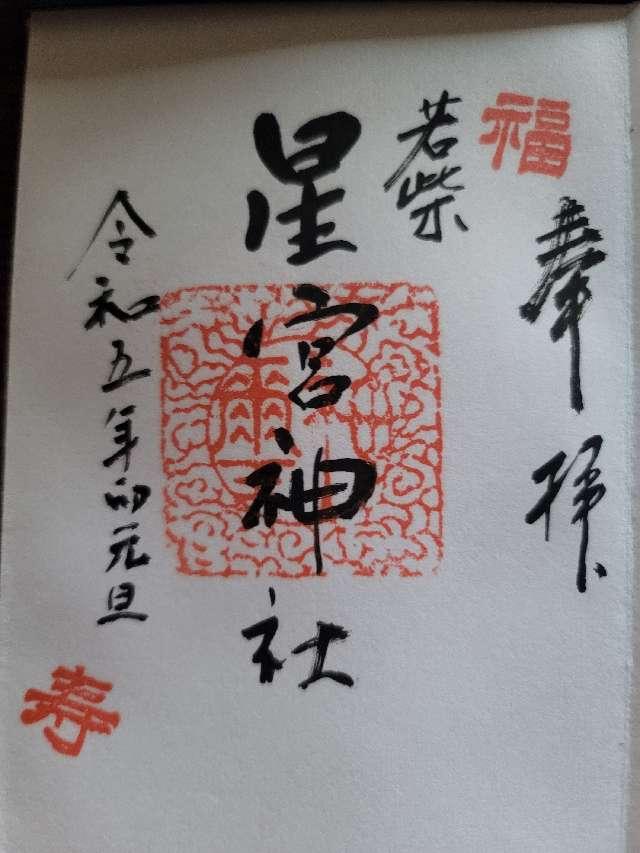 福
奉拝
若柴
星宮神社
令和五年卯元旦
寿